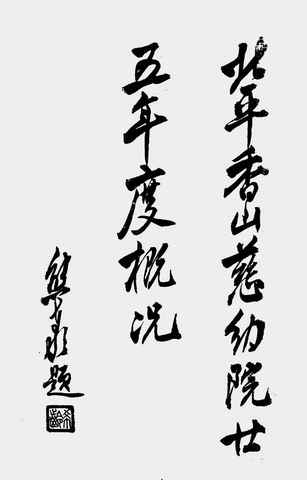 北平香山慈幼院廿
五年度概况
熊芷題